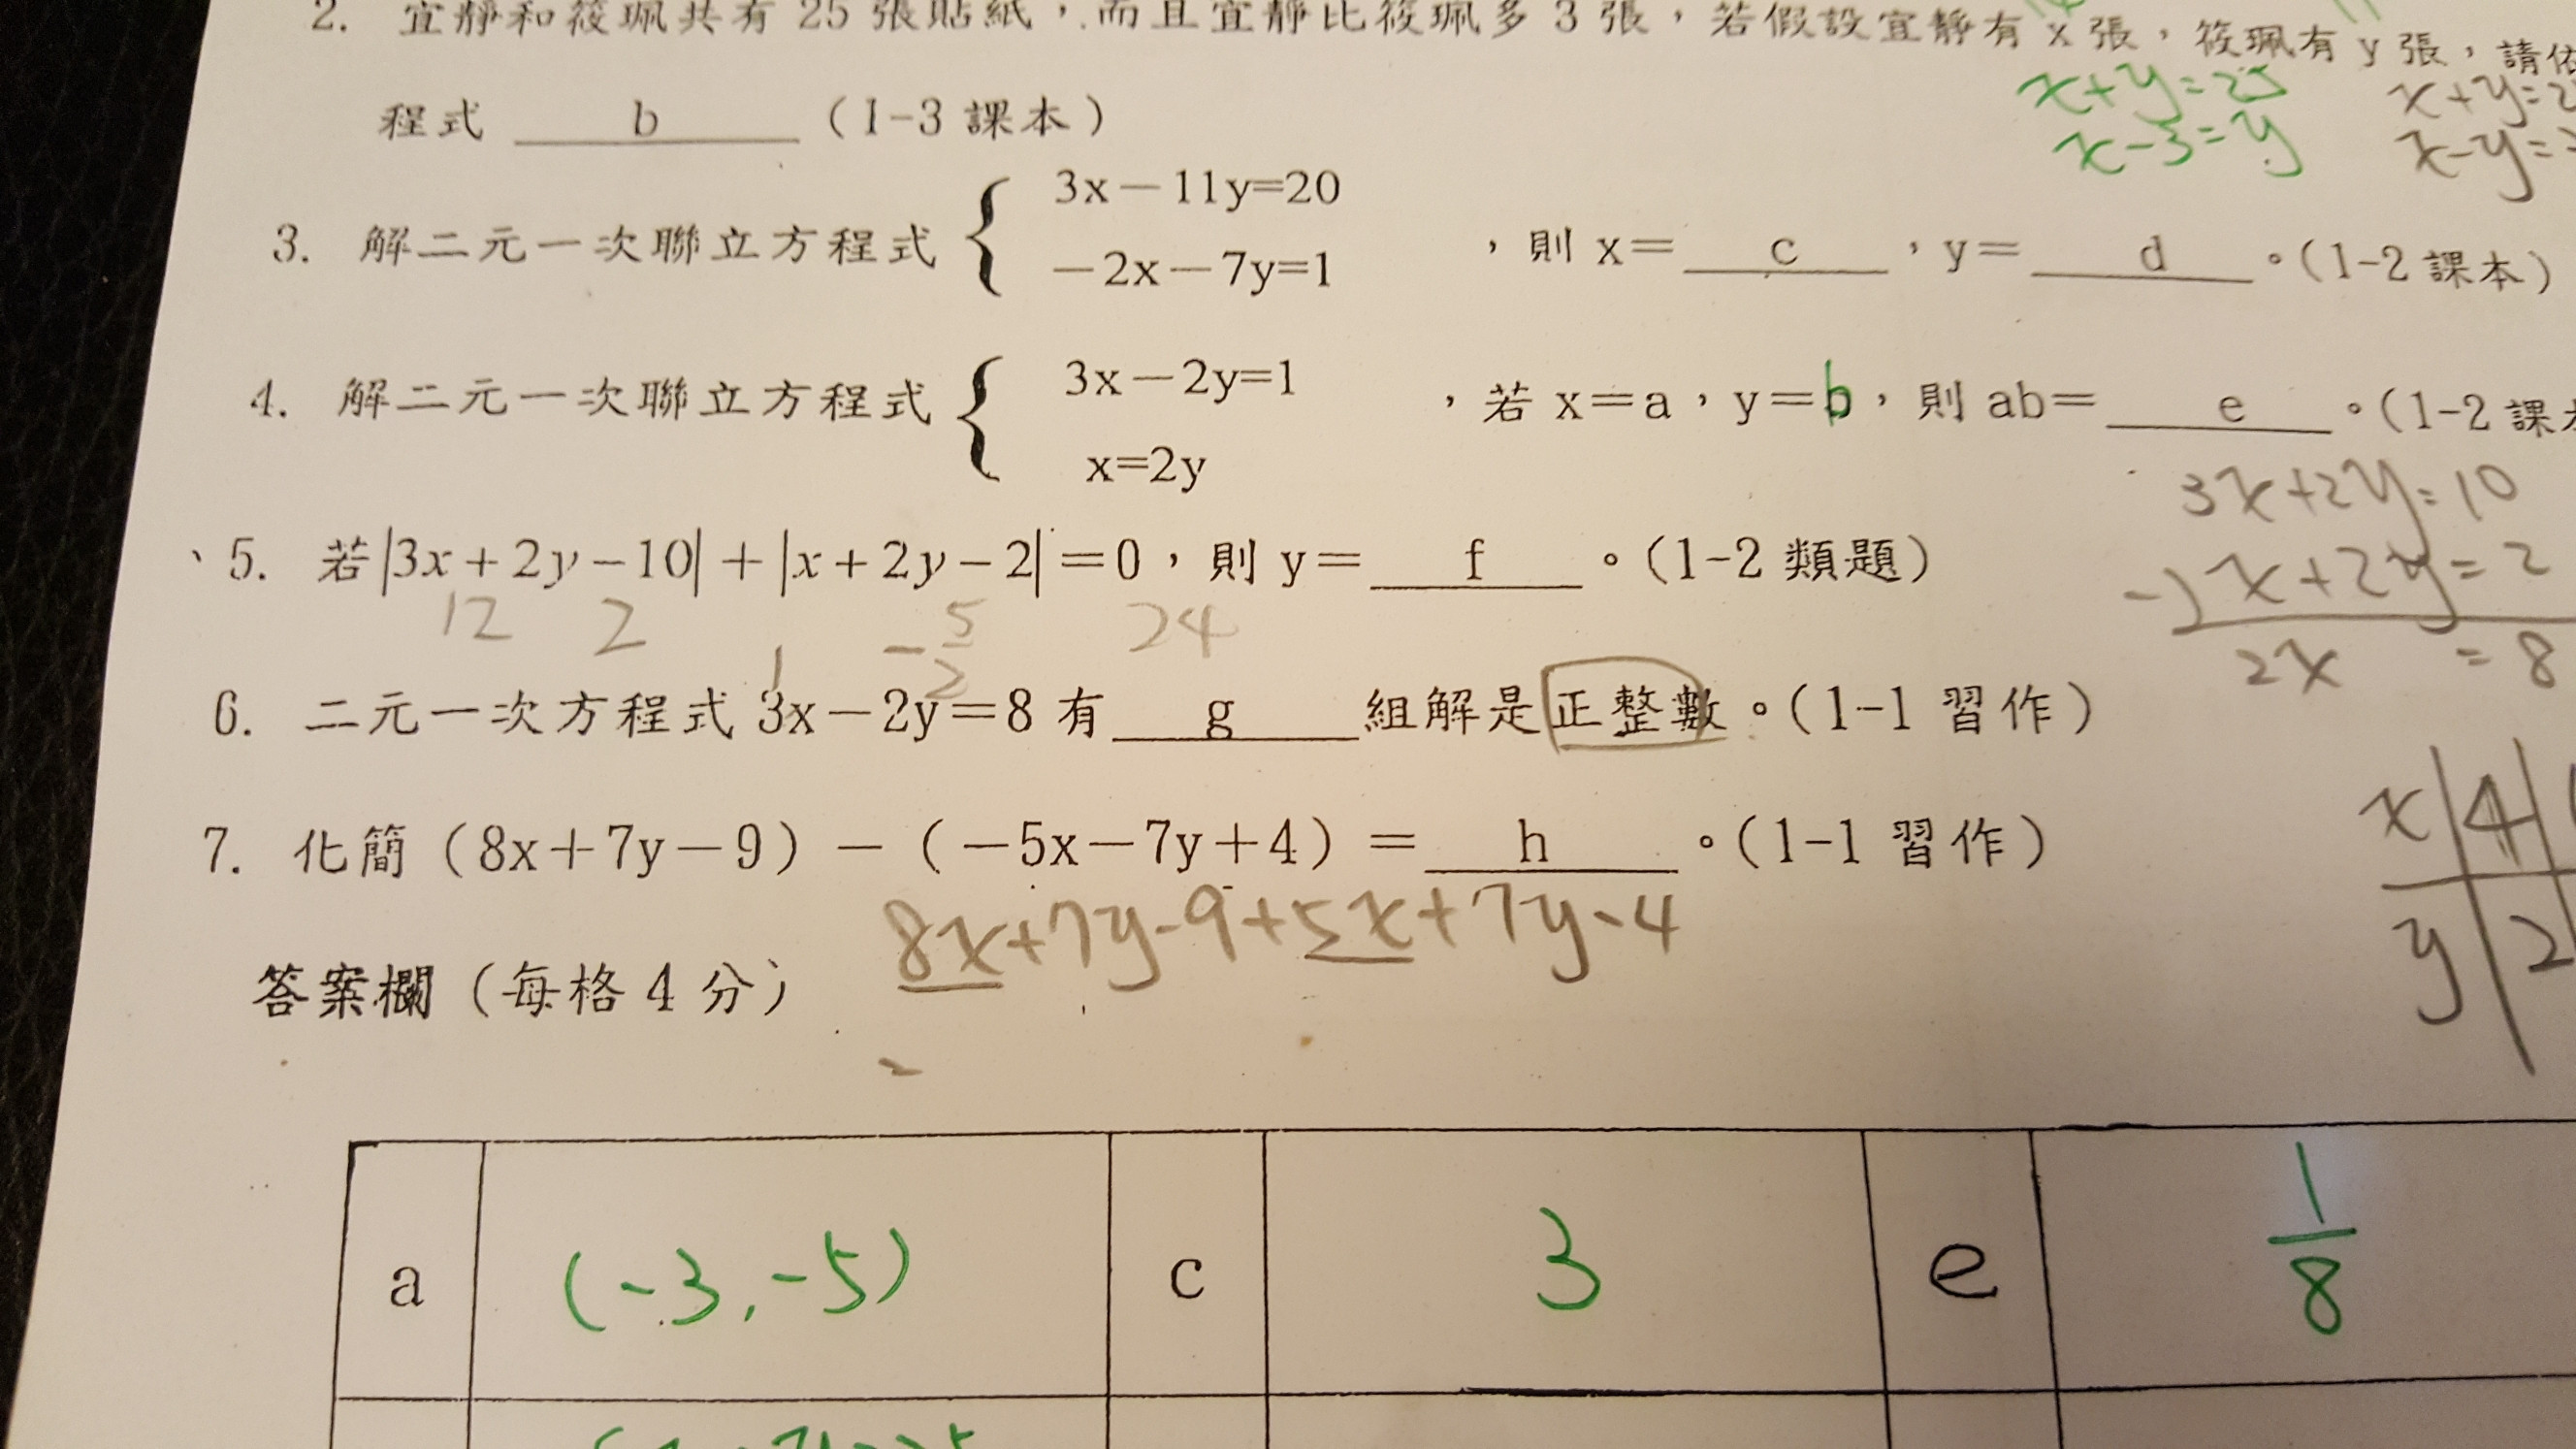 2. 宜靜和筱珮共有 25 張貼紙，而且宜靜比筱珮多 3 張，若假設宜靜有 x 張，筱珮有 y 張，請依
x+y=25
x-3=y
x+y=2
x-y=
程式 b （1-3 課本）
3. 解二元一次聯立方程式 { 3x－11y=20
－2x－7y=1 ，則 x＝ c ，y＝ d 。（1-2 課本）
4. 解二元一次聯立方程式 { 3x－2y=1
x=2y ，若 x＝a，y＝b，則 ab＝ e 。（1-2 課
3x+2y=10
-) x+2y=2
2x =8
5. 若|3x+2y-10|+|x+2y-2|=0，則 y＝ f 。（1-2 類題）
12 2 1 -5/2 24
6. 二元一次方程式 3x－2y＝8 有 g 組解是正整數。（1-1 習作）
x 4
y 2
7. 化簡（8x＋7y－9）－（－5x－7y＋4）＝ h 。（1-1 習作）
8x+7y-9+5x+7y-4
=
答案欄（每格 4 分）
a (-3,-5) c 3 e 1/8